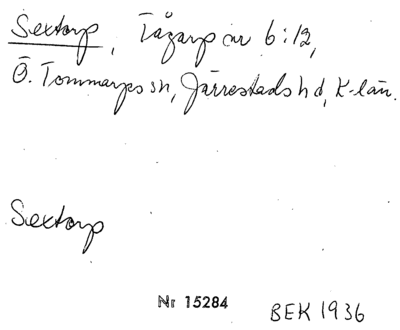 Sextorp, Tågarp nr 6:12,
Ö. Tommarps sn, Järrestads hd, K-län.
Sextorp
Nr 15284 BEK 1936